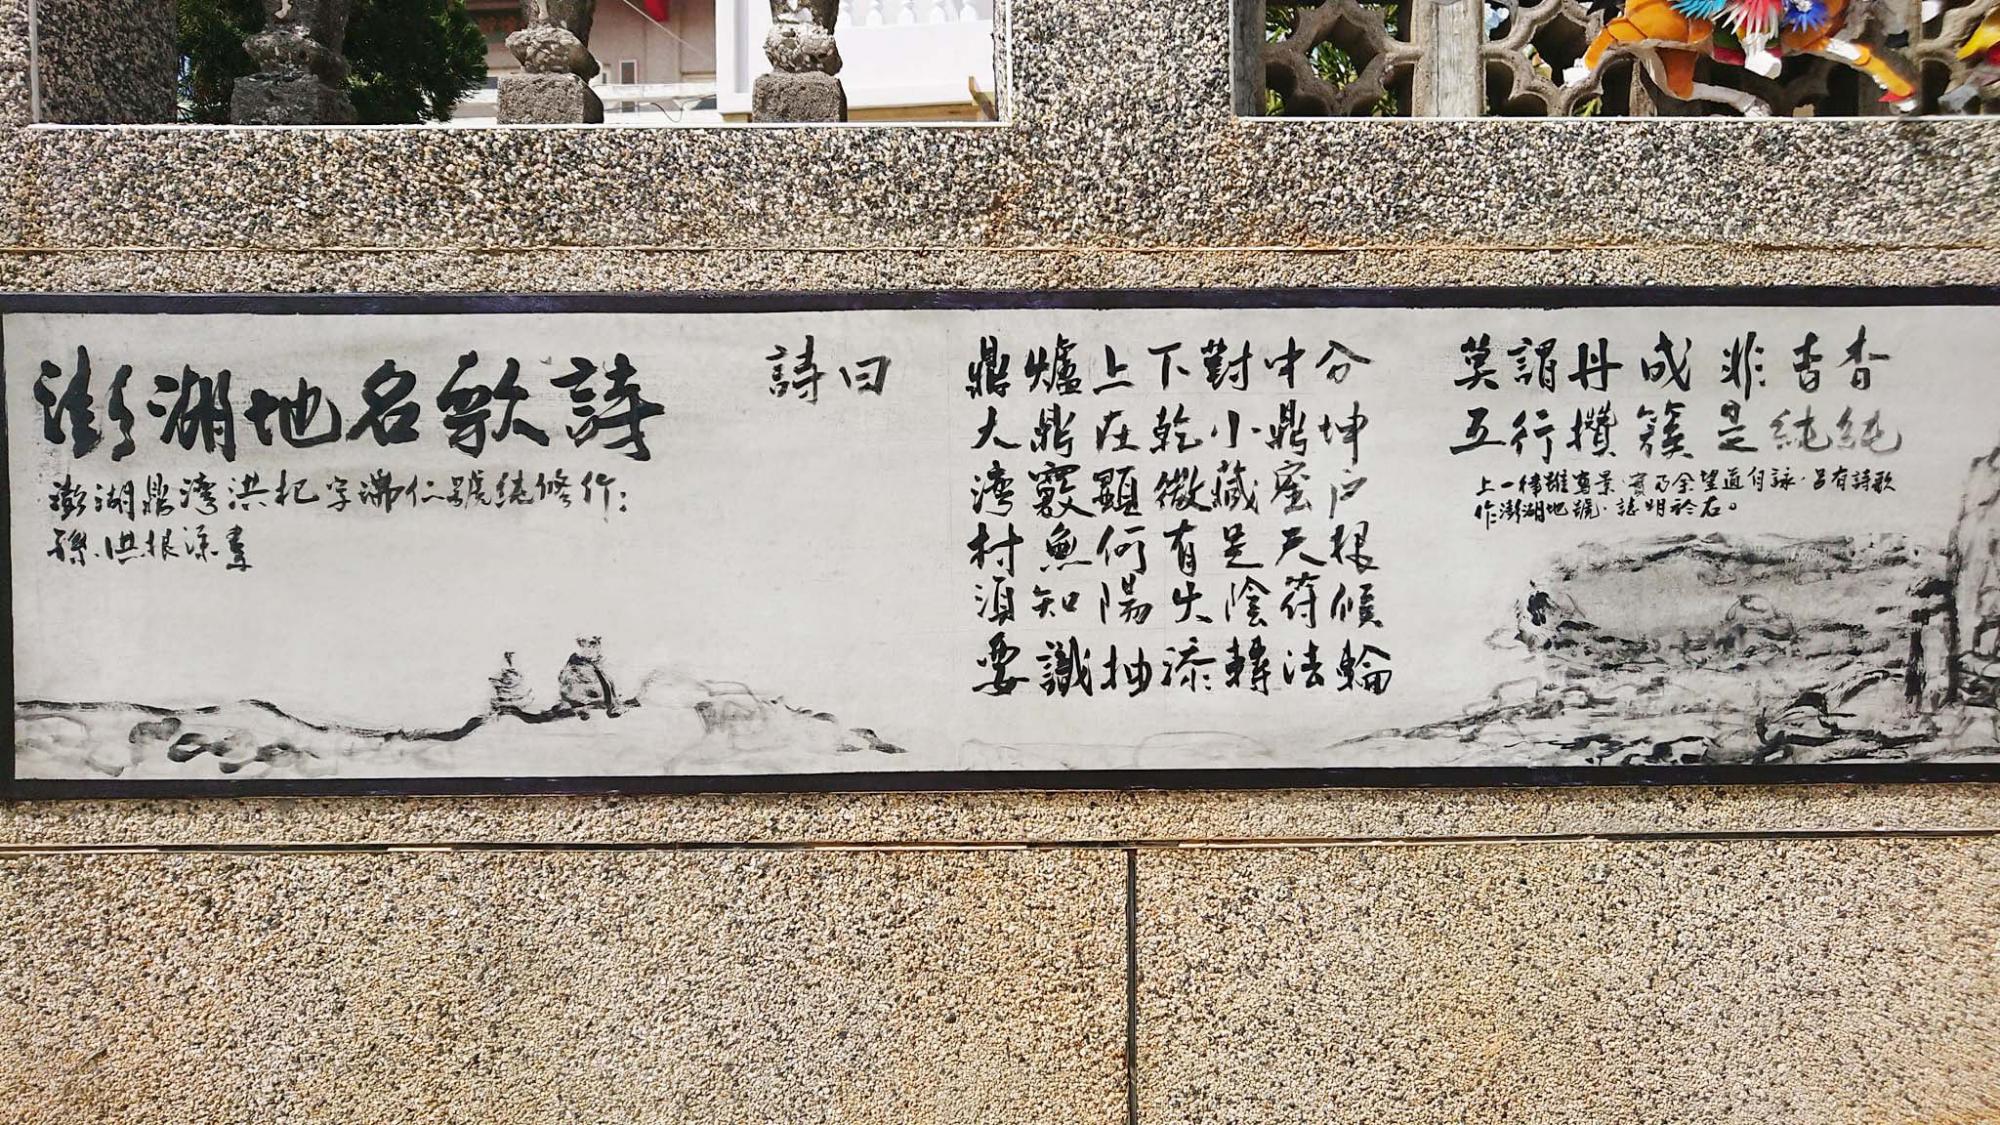 澎湖地名歌詩
澎湖鼎灣洪杞字沛仁號德修作：
孫．洪根深書
詩曰
鼎爐上下對中分
大鼎在乾小鼎坤
灣竅顯微藏窟戶
村魚何有是天根
須知陽火陰符候
要識抽添轉法輪
莫謂丹成非杳杳
五行攢簇是純純
上一律雖寫景．實乃余望道自詠．另有詩歌
作澎湖地號．誌明於右。